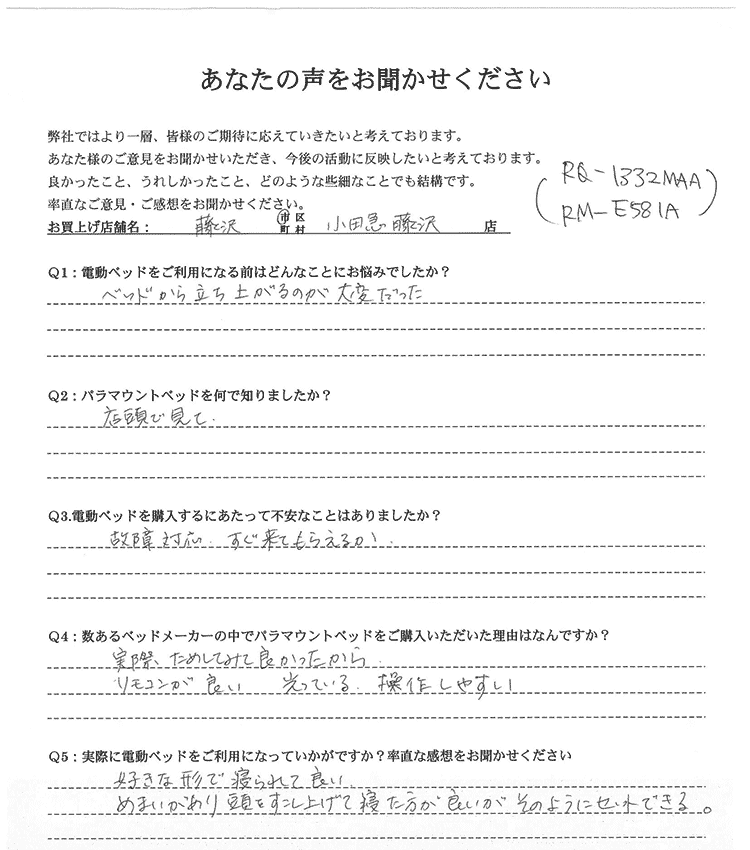 あなたの声をお聞かせください
弊社ではより一層、皆様のご期待に応えていきたいと考えております。
あなた様のご意見をお聞かせいただき、今後の活動に反映したいと考えております。
良かったこと、うれしかったこと、どのような些細なことでも結構です。
率直なご意見・ご感想をお聞かせください。
(RQ-1332MAA
RM-E581A)
お買上げ店舗名： 藤沢 市区町村 小田急藤沢 店
Q1：電動ベッドをご利用になる前はどんなことにお悩みでしたか？
ベッドから立ち上がるのが大変だった
Q2：パラマウントベッドを何で知りましたか？
店頭で見て.
Q3.電動ベッドを購入するにあたって不安なことはありましたか？
故障対応. すぐ来てもらえるか.
Q4：数あるベッドメーカーの中でパラマウントベッドをご購入いただいた理由はなんですか？
実際、ためしてみて良かったから.
リモコンが良い 光っている. 操作しやすい
Q5：実際に電動ベッドをご利用になっていかがですか？率直な感想をお聞かせください
好きな形で寝られて良い.
めまいがあり頭をすこし上げて寝た方が良いがそのようにセットできる。